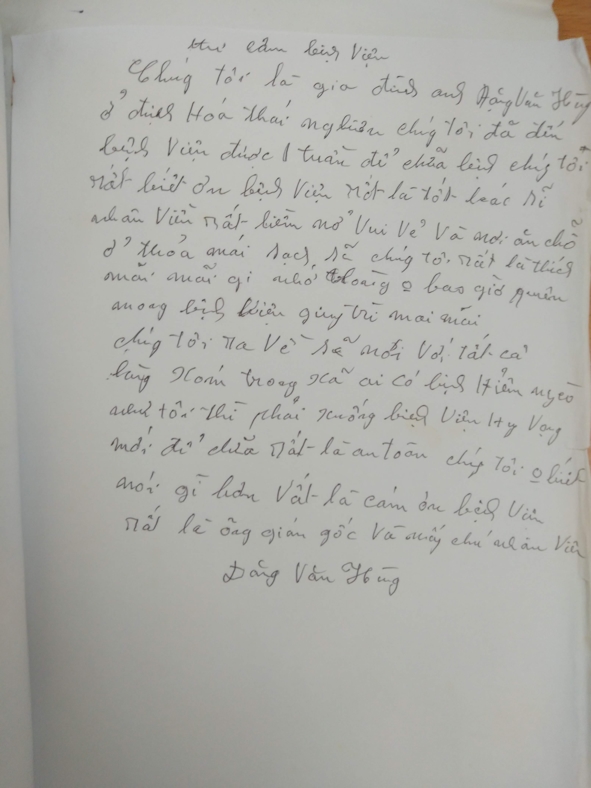 thư cảm bệnh Viện
Chúng tôi là gia đình anh Đặng Văn Hùng
ở định Hoá thái nguyên chúng tôi đã đến
bệnh Viện được 1 tuần để chữa bệnh chúng tôi
rất biết ơn bệnh Viện rất là tốt bác sĩ
nhân Viên rất niềm nở Vui Vẻ Và nơi ăn chỗ
ở thỏa mái sạch sẽ chúng tôi rất là thích
mãi mãi gi nhớ không o bao giờ quên
mong bệnh Viện quy trì mai mãi
chúng tôi ra Về sẽ nói Với tất cả
làng xóm trong xã ai có bệnh Hiểm ngèo
như tôi thì phải xuống bệnh Viện Hy Vọng
mới để chữa rất là an toàn chúng tôi o biết
nói gì hơn Vất là cám ơn bệnh Viên
rất là ông gián gốc Và mấy chú nhân Viên
Đặng Văn Hùng